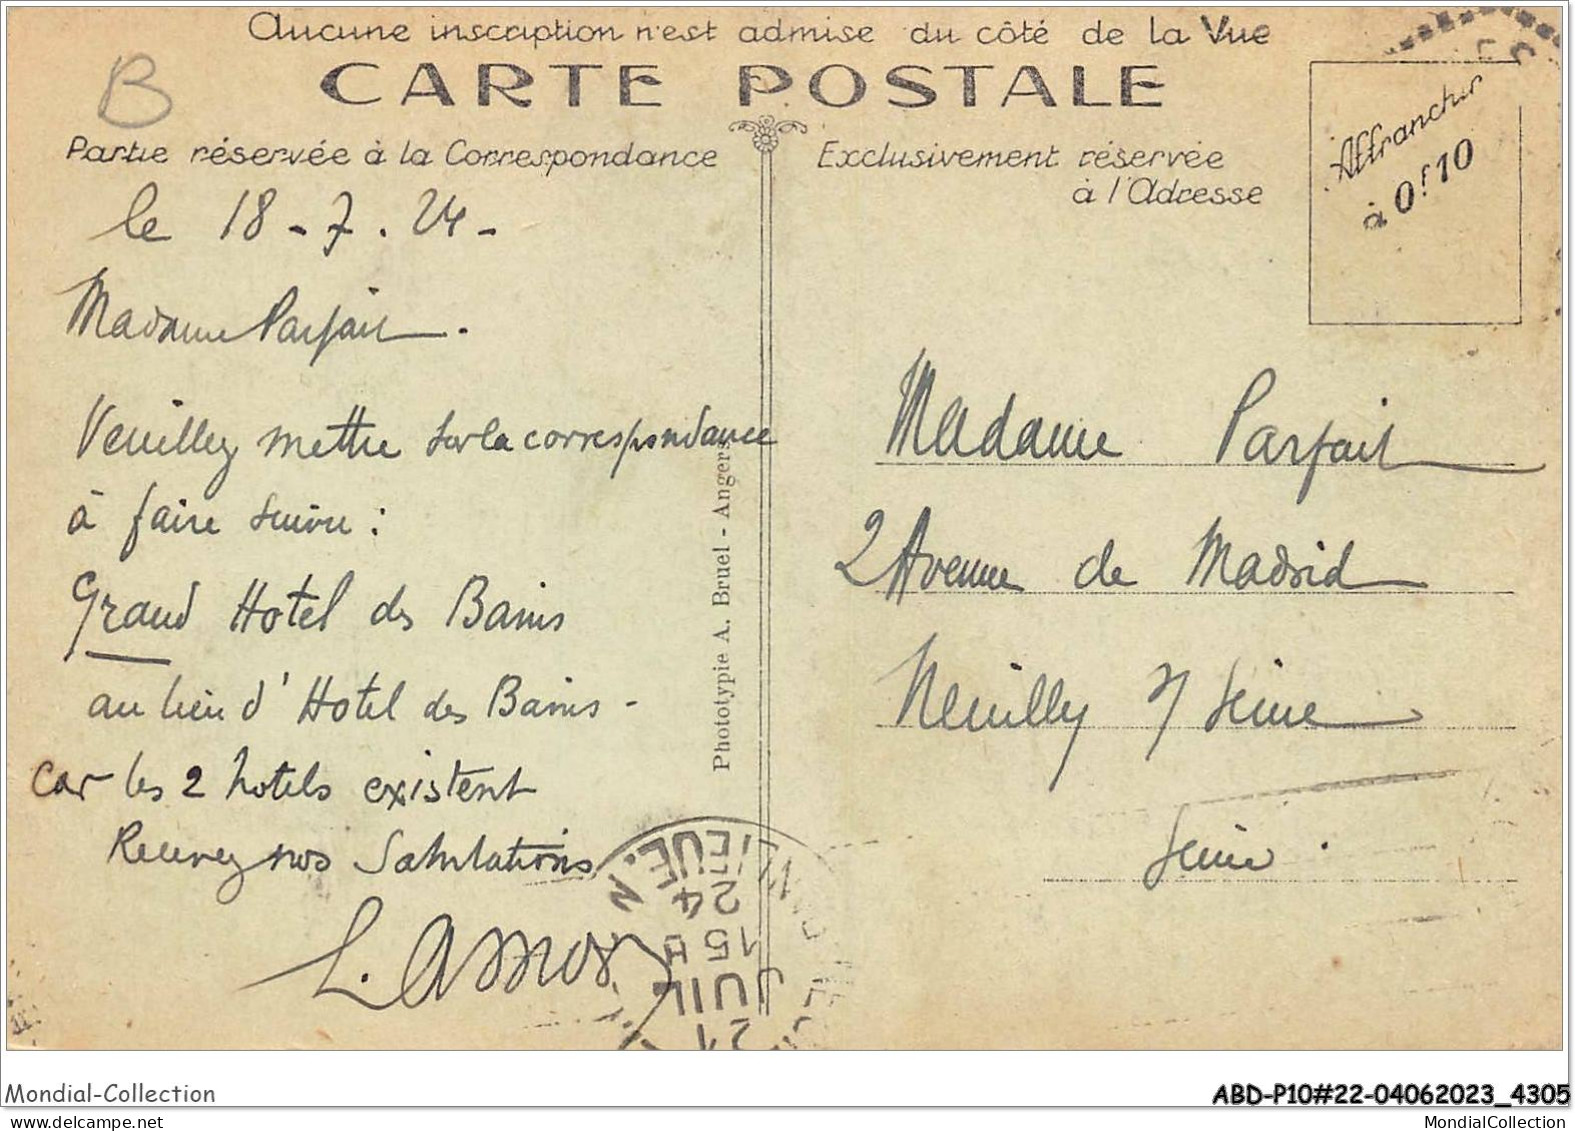 Aucune inscription n'est admise du côté de la Vue
CARTE POSTALE
B
Partie réservée à la Correspondance
Exclusivement réservée
à l'Adresse
Affranchir
à 0f10
le 18-7.24-
Madame Parfait.
Veuillez mettre sur la correspondance
à faire suivre :
Grand Hotel des Bains
au lieu d'Hotel des Bains-
car les 2 hotels existent
Recevez nos Salutations
L.
Phototypie A. Bruel - Angers
Madame Parfait
2 Avenue de Madrid
Neuilly s/ Seine
Seine.
21
JUIL
15 H
24
Mondial-Collection
ABD-P10#22-04062023_4305
MondialCollection
MondialCollection.com